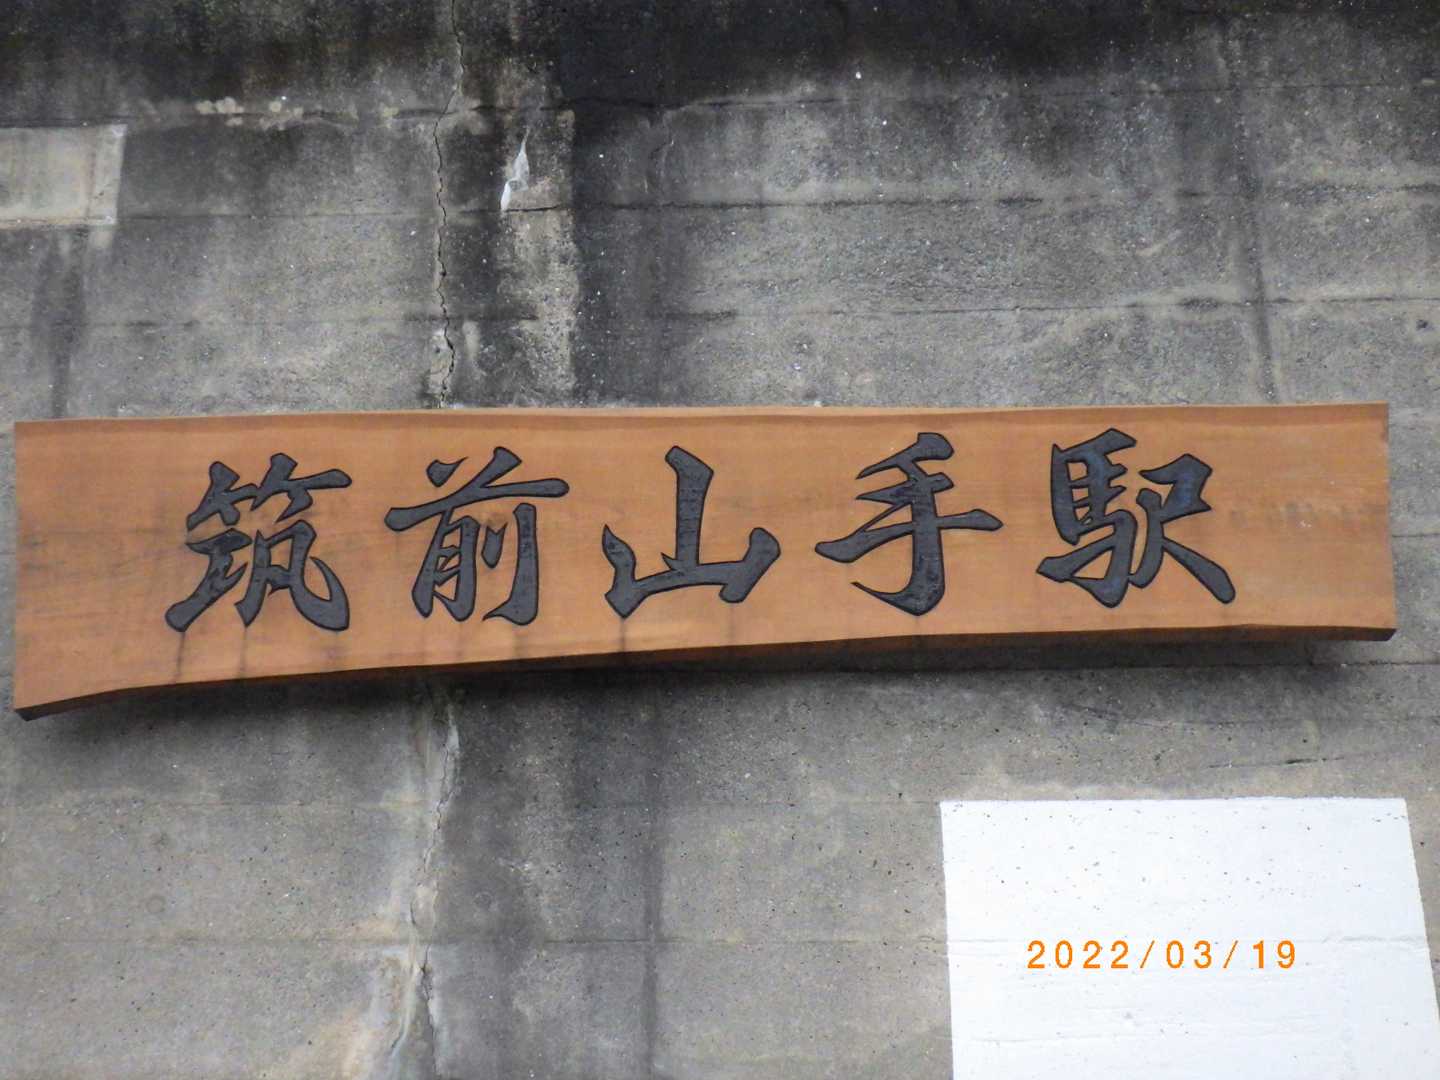 筑前山手駅
2022/03/19